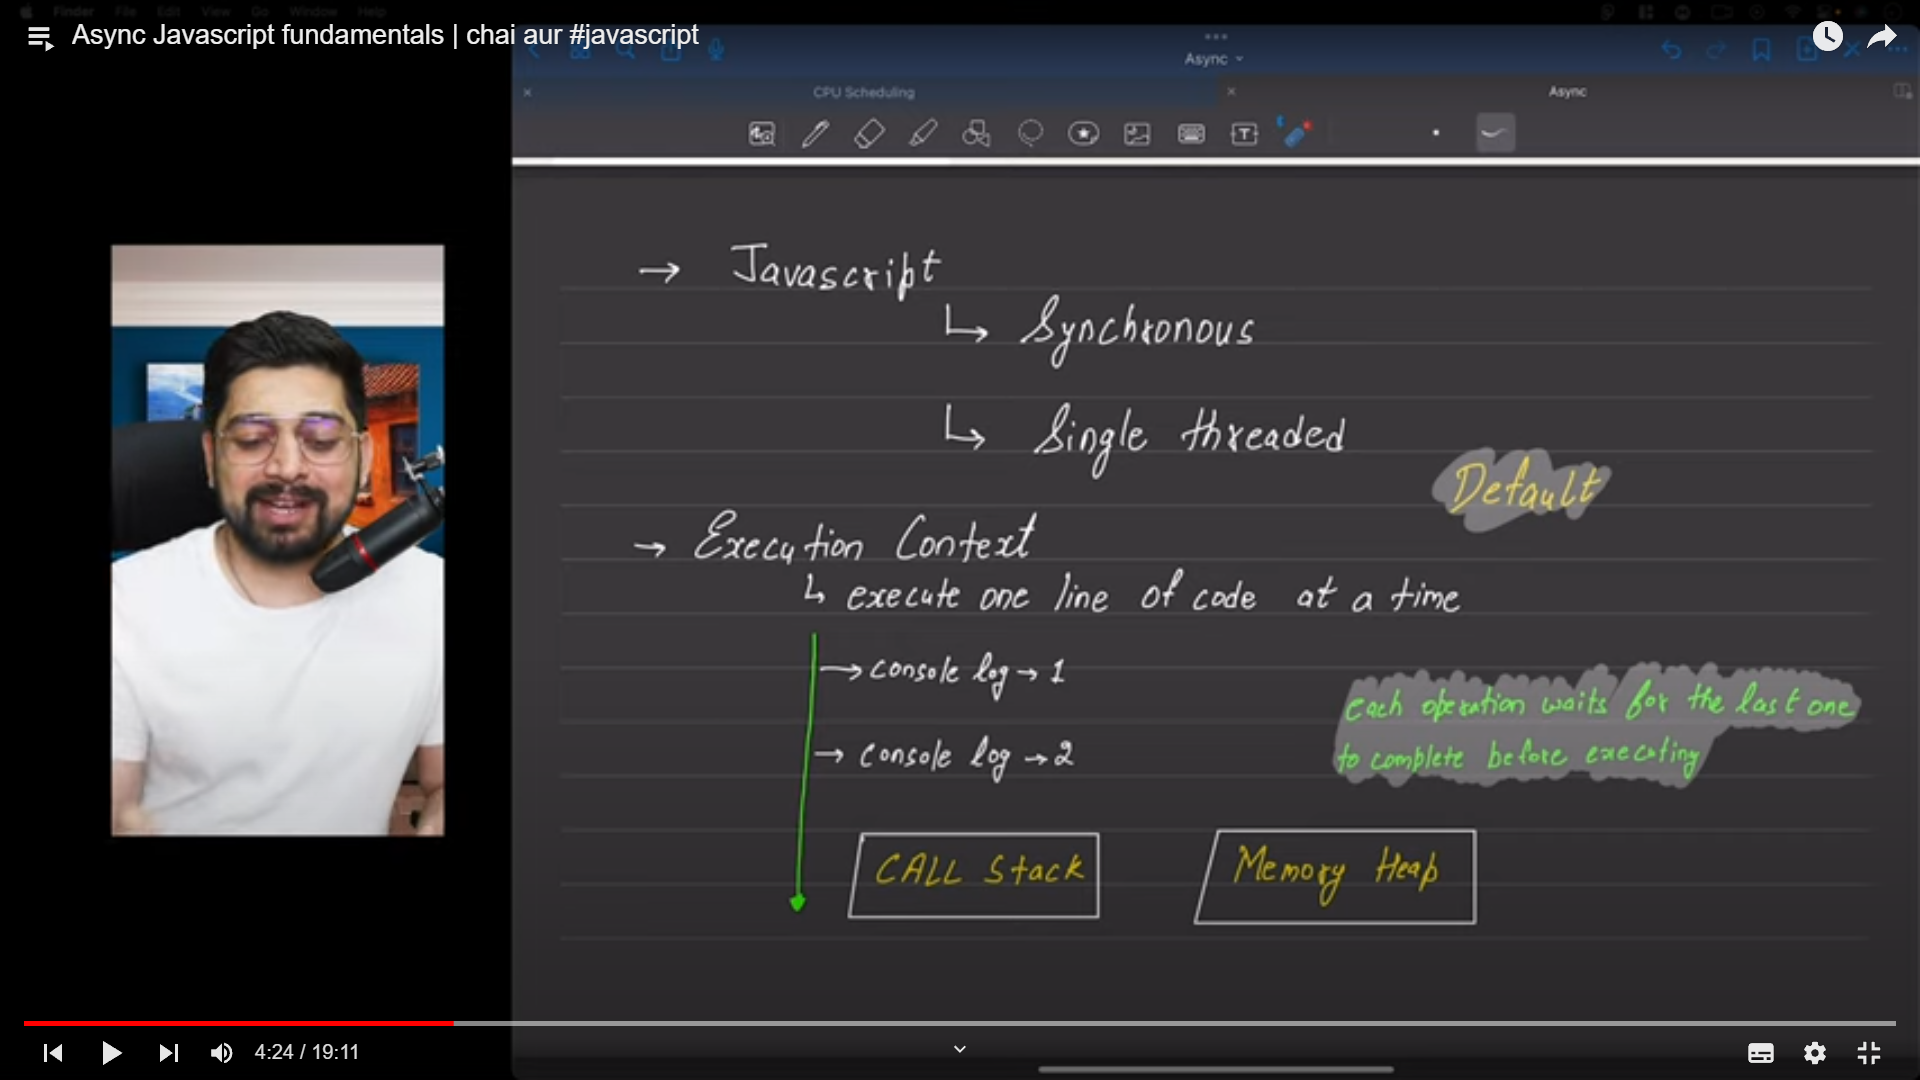 Finder File Edit View Go Window Help
Async Javascript fundamentals | chai aur #javascript
Async
CPU Scheduling
Async
→ Javascript
↳ Synchronous
↳ Single threaded
Default
→ Execution Context
↳ execute one line of code at a time
→ console log → 1
→ console log → 2
each operation waits for the last one
to complete before executing
CALL Stack
Memory Heap
4:24 / 19:11